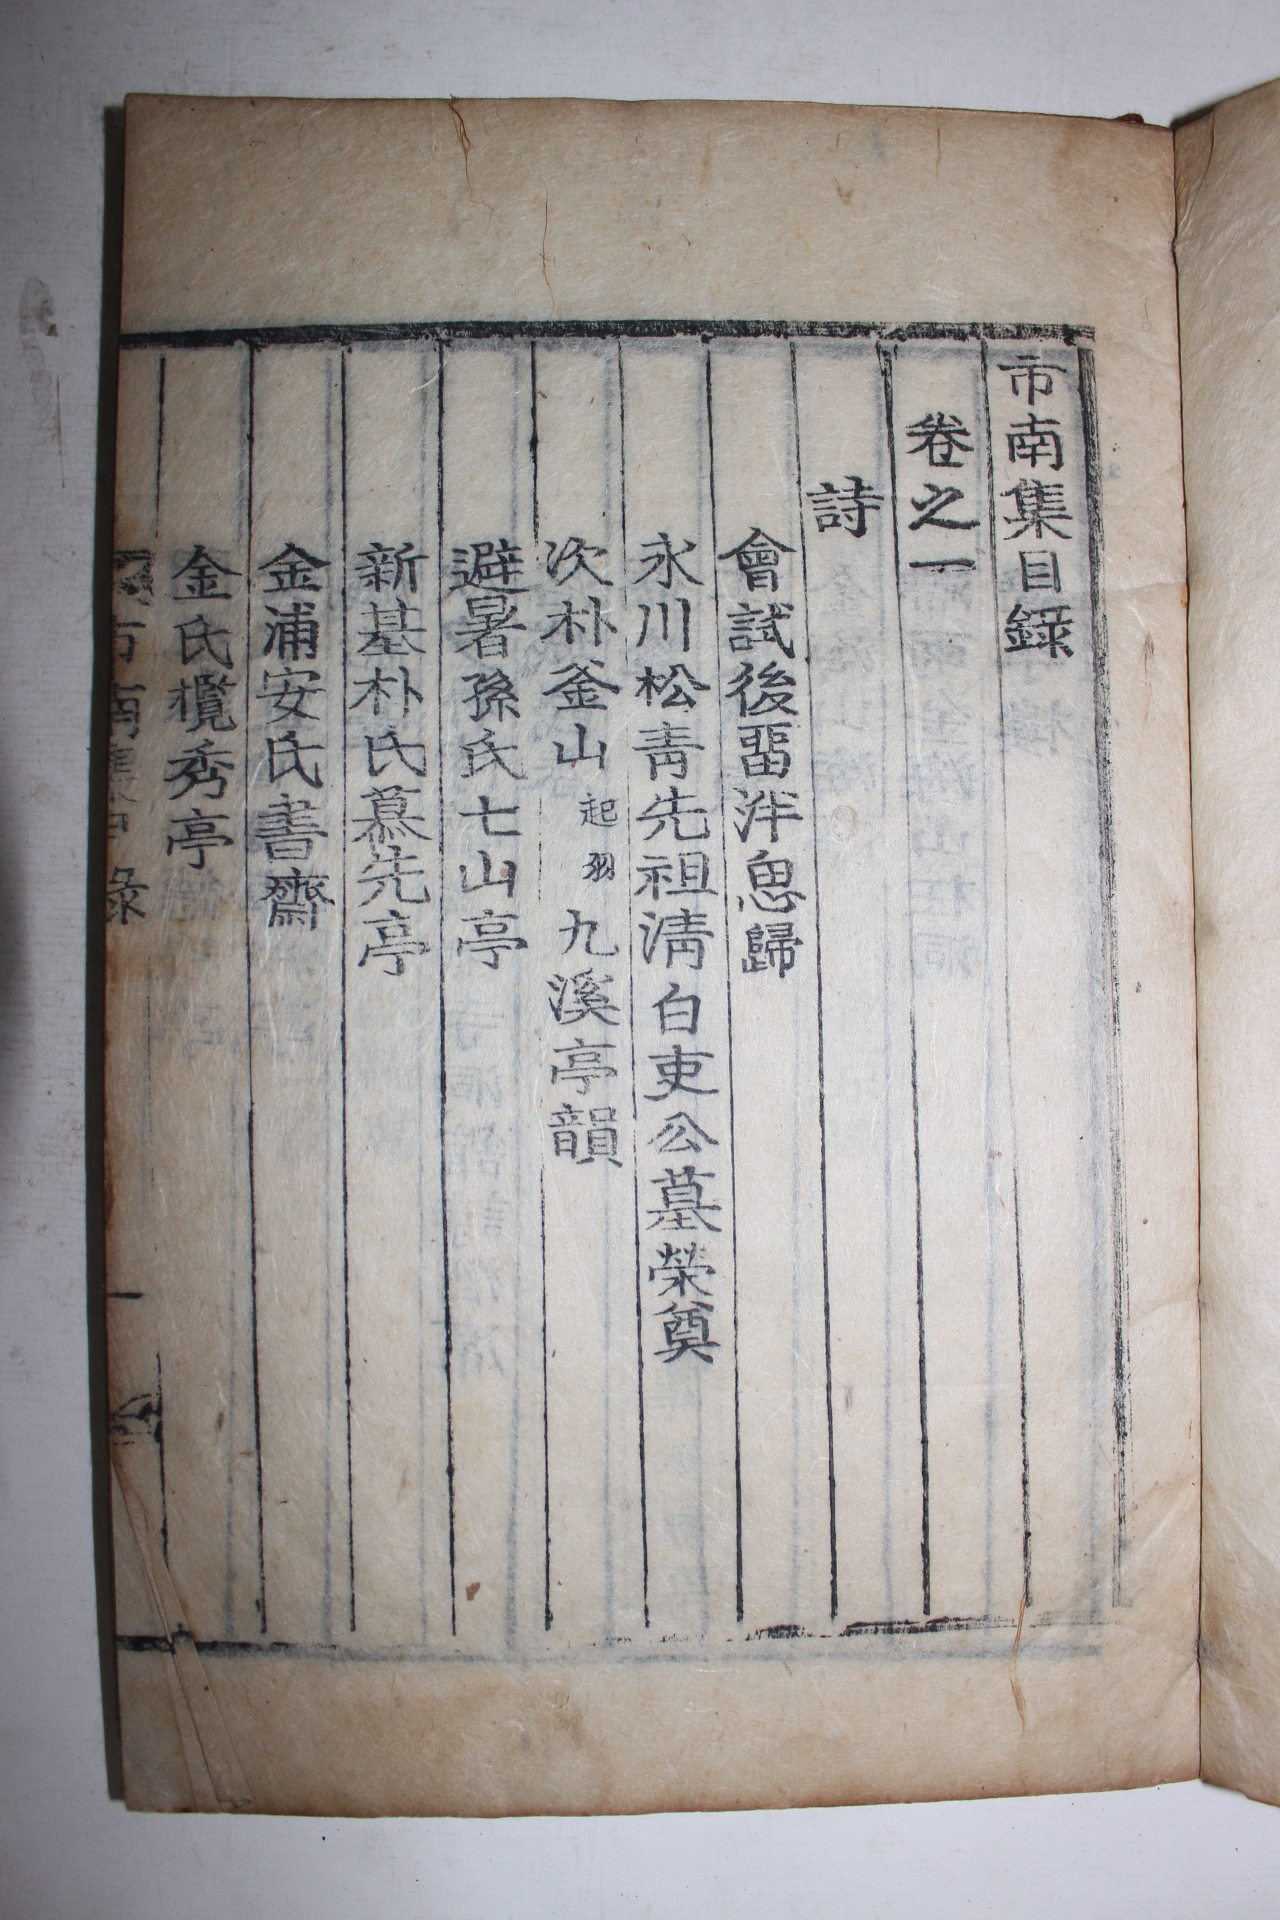 市南集目錄
卷之一
詩
會試後畱泮思歸
永川松靑先祖淸白吏公墓榮奠
次朴釜山起羽九溪亭韻
避暑孫氏七山亭
新基朴氏慕先亭
金浦安氏書齋
金氏欖秀亭
市南集目錄 一